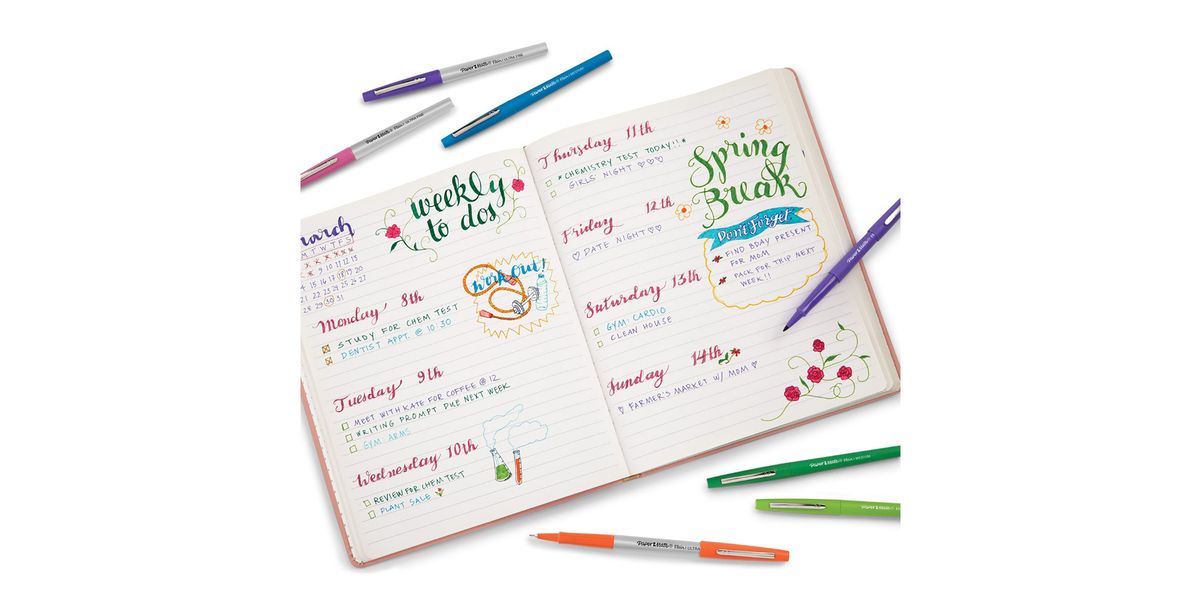 weekly
to dos
M T W T F S
9 10 11 12 13
14 15 16 17 18 19 20
21 22 23 24 25 26 27
28 29 30 31
Monday 8th
STUDY FOR CHEM TEST
DENTIST APPT. @ 10:30
work out!
Tuesday 9th
MEET WITH KATE FOR COFFEE @ 12
WRITING PROMPT DUE NEXT WEEK
GYM ARMS
Wednesday 10th
REVIEW FOR CHEM TEST
PLANT SALE
Thursday 11th
*CHEMISTRY TEST TODAY!!*
GIRLS' NIGHT ♡♡♡
Friday 12th
♡ DATE NIGHT ♡♡
Saturday 13th
GYM: CARDIO
CLEAN HOUSE
Sunday 14th
♡ FARMER'S MARKET W/ MOM ♡
Spring
Break
Don't Forget
FIND BDAY PRESENT
FOR MOM
PACK FOR TRIP NEXT
WEEK!!
Paper Mate® Flair ULTRA FINE
Paper Mate® Flair MEDIUM
Paper Mate® Flair ULTRA FINE
Paper Mate®
Paper Mate® Flair MEDIUM
Paper Mate® Flair
Paper Mate® Flair ULTRA